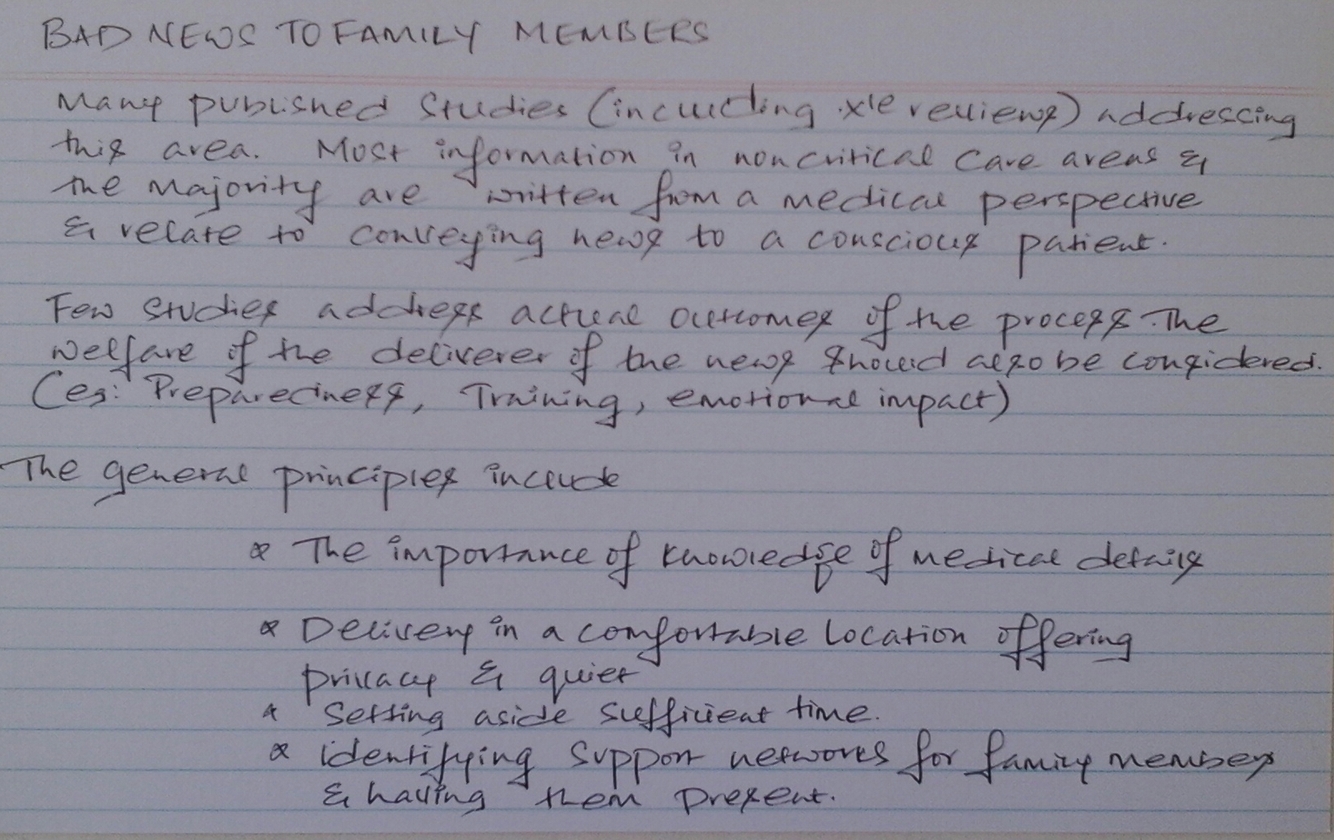 BAD NEWS TO FAMILY MEMBERS
Many published studies (including x'le reviews) addressing
this area. Most information in noncritical care areas &
the majority are written from a medical perspective
& relate to conveying news to a conscious patient.
Few studies address actual outcomes of the process. The
welfare of the deliverer of the news should also be considered.
(eg: Preparedness, Training, emotional impact)
The general principles include
* The importance of knowledge of medical details
* Delivery in a comfortable location offering
privacy & quiet
* Setting aside sufficient time.
* identifying support networks for family members
& having them present.